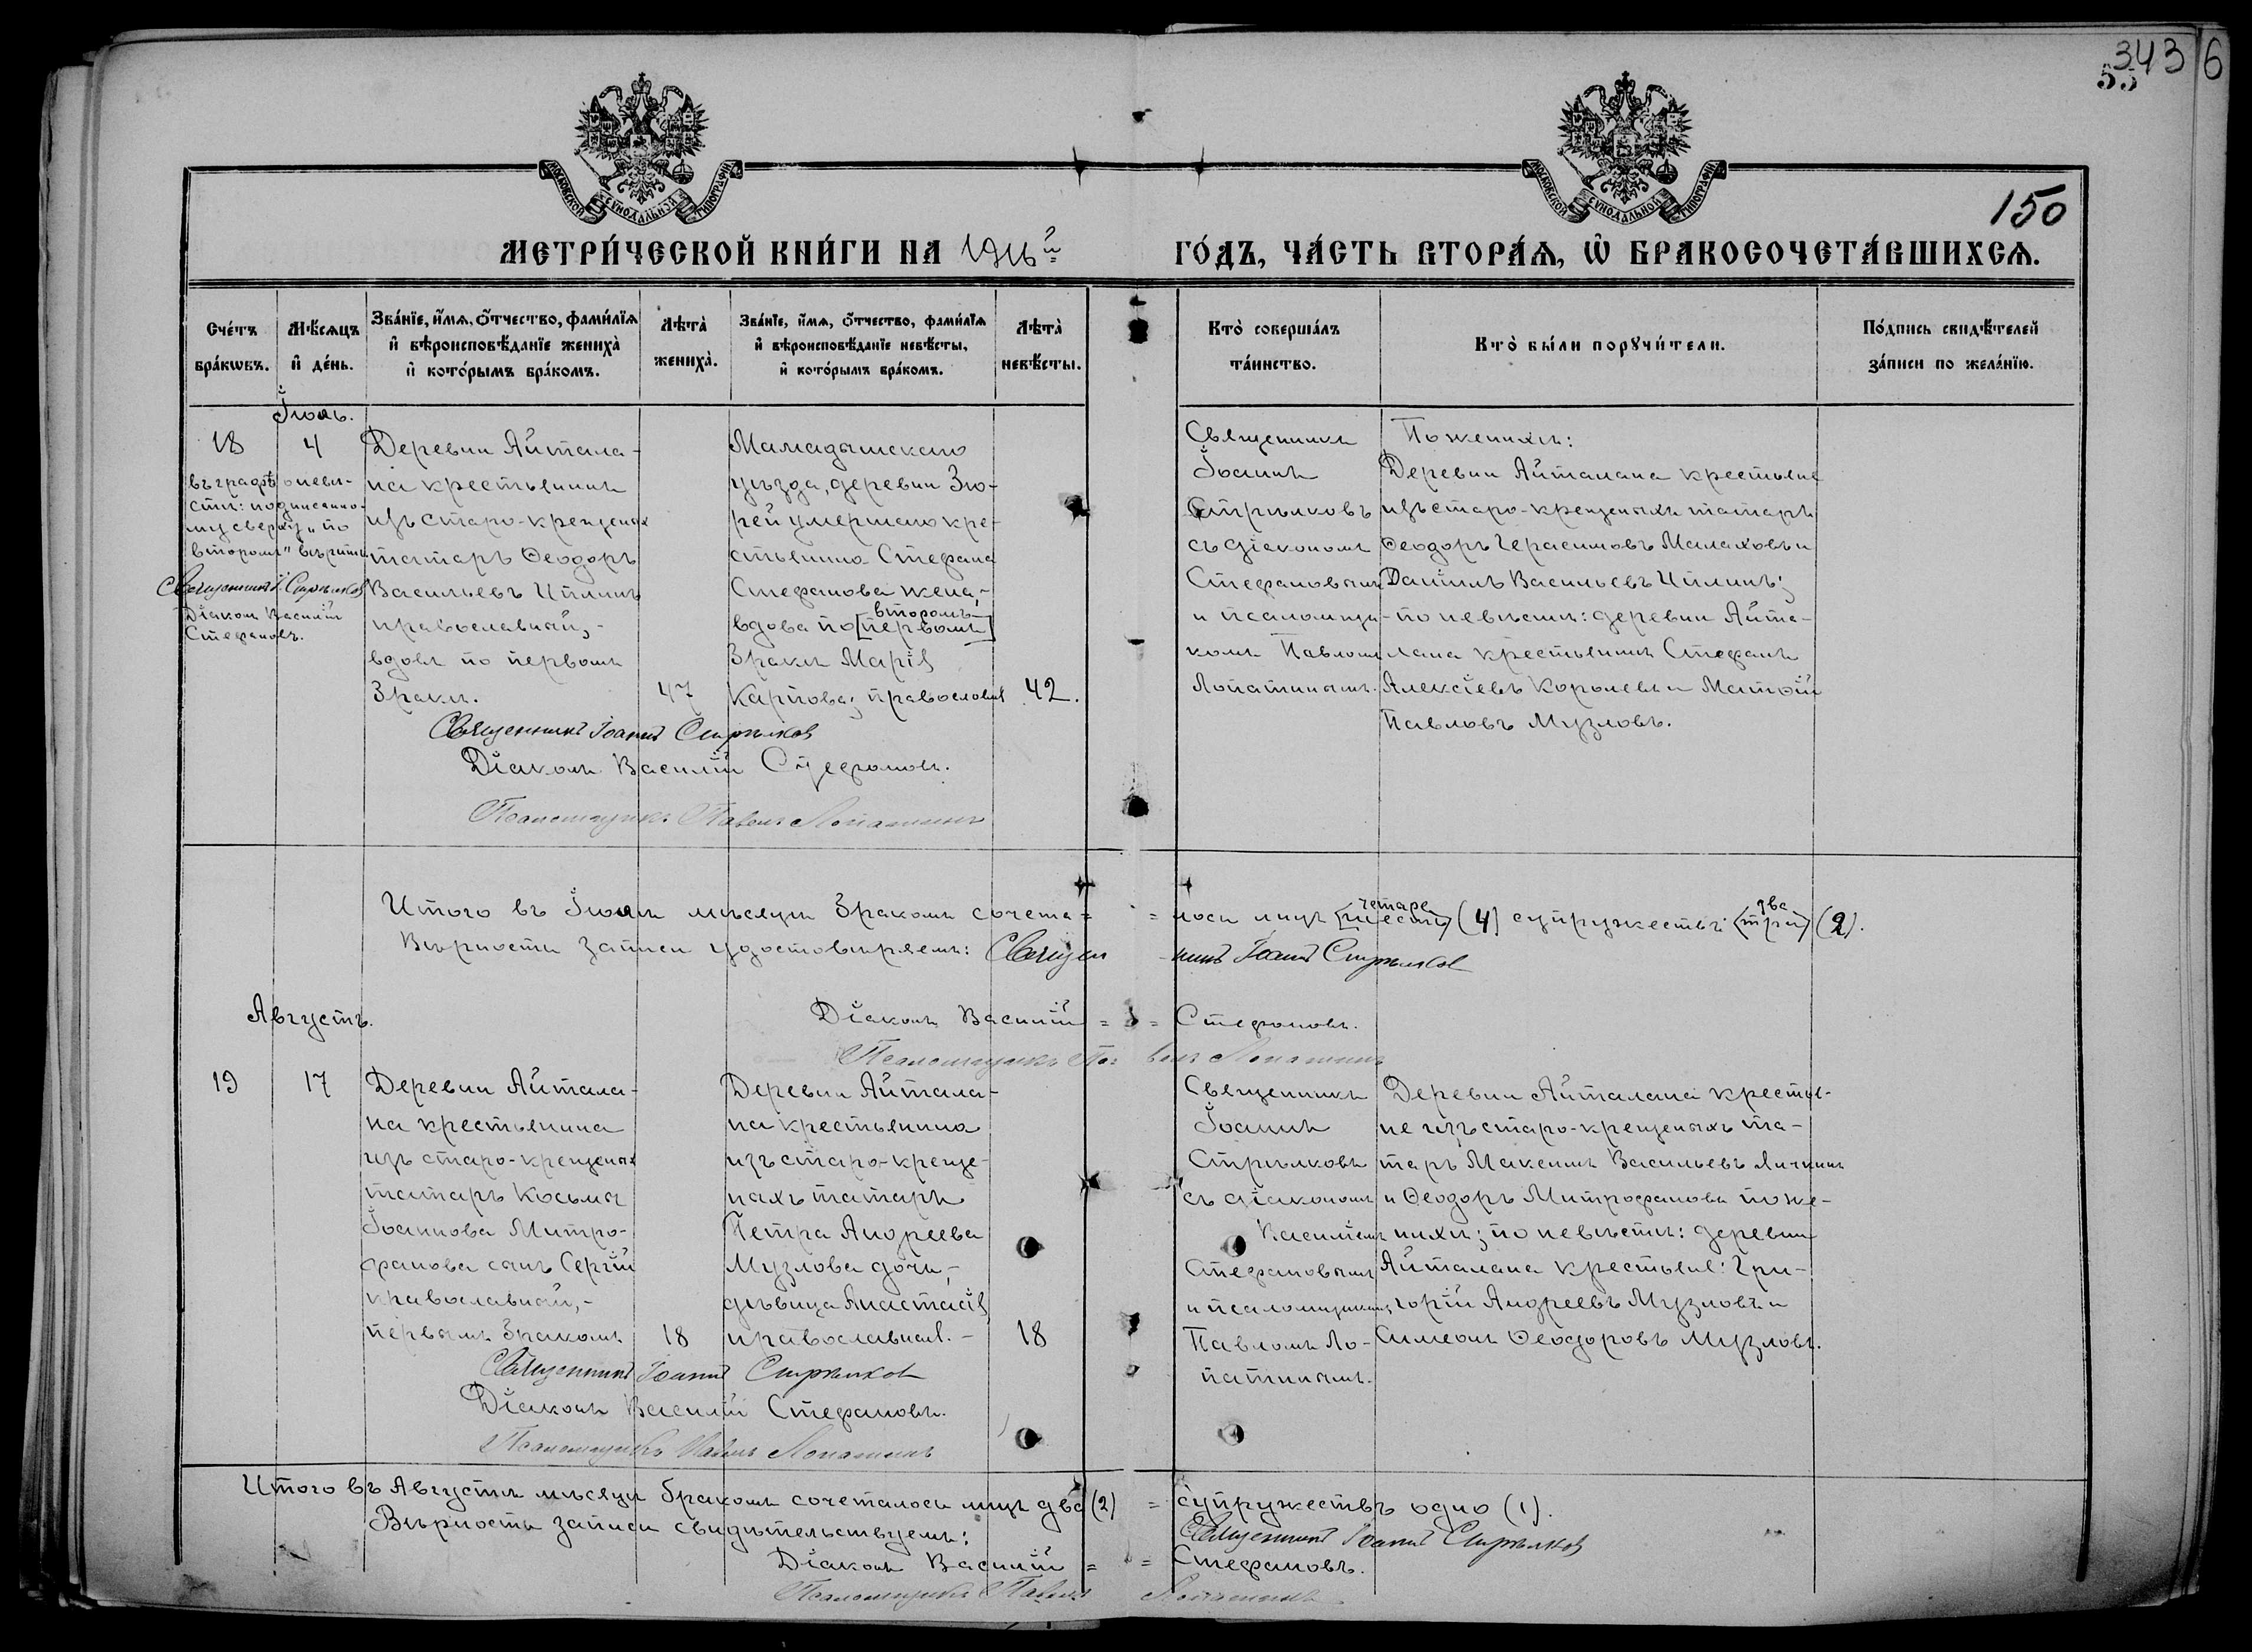 343/6
55
МОСКОВСКОЙ СΥНОДАЛЬНОЙ ТИПОГРАФІИ
МОСКОВСКОЙ СΥНОДАЛЬНОЙ ТИПОГРАФІИ
150
МЕТРИ́ЧЕСКОЙ КНИ́ГИ НА 1916й
ГО́ДЪ, ЧА́СТЬ ВТОРА́Ѧ, Ѡ҆ БРАКОСОЧЕТА́ВШИХСѦ.
Сче́тъ
бра́кѡвъ.
Мѣ́сяцъ
и҆ де́нь.
Зва́нїе, и҆́мѧ, ѻ҆́тчество, фами́лїѧ
и҆ вѣроисповѣ́данїе жениха̀
и҆ кото́рымъ бра́комъ.
Лѣта̀
жениха̀.
Зва́нїе, и҆́мѧ, ѻ҆́тчество, фами́лїѧ
и҆ вѣроисповѣ́данїе невѣ́сты,
и҆ кото́рымъ бра́комъ.
Лѣта̀
невѣ́сты.
Кто̀ соверша́лъ
та́инство.
Кто̀ бы́ли порꙋчи́тели.
По́дпись свидѣ́телей
за́писи по жела́нїю.
Іюль.
18
4
въ графѣ о невѣ-
стѣ: подписанно-
му сверху „по
второмъ" вѣрить.
Священникъ І. Стрѣлковъ
Діаконъ Василій
Стефановъ.
Деревни Айтала-
на крестьянинъ
изъ старо-крещеныхъ
татаръ Ѳеодоръ
Васильевъ Ишинъ
православный,-
вдовъ по первомъ
бракѣ.
47
Мамадышскаго
уѣзда, деревни Зю-
рей умершаго кре-
стьянина Стефана
Стефанова жена,-
вторымъ
вдова по [первомъ]
бракѣ Марія
Карпова, православная
42.
Священникъ
Іоаннъ
Стрѣлковъ
съ діакономъ
Стефановымъ
и псаломщи-
комъ Павломъ
Лопатинымъ.
По женихѣ:
Деревни Айталана крестьяне
изъ старо-крещеныхъ татаръ
Ѳеодоръ Герасимовъ Малаховъ и
Даніилъ Васильевъ Ишинъ;
- по невѣстѣ: деревни Айта-
лана крестьянинъ Стефанъ
Алексіевъ Королевъ и Матѳій
Павловъ Музловъ.
Священникъ Іоаннъ Стрѣлков
Діаконъ Василій Стефановъ.
Псаломщикъ Павелъ Лопатинъ
Итого въ Іюлѣ мѣсяцѣ бракомъ сочета= =лось лицъ [шесть] четыре (4) супружествъ [три] два (2).
Вѣрность записи удостовѣряемъ: Священникъ Іоаннъ Стрѣлков
Діаконъ Василій = = Стефановъ.
Псаломщикъ Павелъ Лопатинъ
Августъ.
19
17
Деревни Айтала-
на крестьянина
изъ старо-крещеныхъ
татаръ Косьмы
Іоаннова Митро-
фанова сынъ Сергій
православный,-
первымъ бракомъ
18
Деревни Айтала-
на крестьянина
изъ старо-креще-
ныхъ татаръ
Петра Андреева
Музлова дочь,-
дѣвица Анастасія
православная.-
18
Священникъ
Іоаннъ
Стрѣлковъ
съ діакономъ
Василіемъ
Стефановымъ
и псаломщикомъ
Павломъ Ло-
патинымъ.
Деревни Айталана крестья-
не изъ старо-крещеныхъ та-
таръ Максимъ Васильевъ Личкинъ
и Ѳеодоръ Митрофановъ по же-
нихѣ; по невѣстѣ: деревни
Айталана крестьяне: Гри-
горій Андреевъ Музловъ и
Симеонъ Ѳеодоровъ Музловъ.
Священникъ Іоаннъ Стрѣлков
Діаконъ Василій Стефановъ.
Псаломщикъ Павелъ Лопатинъ
Итого въ Августѣ мѣсяцѣ бракомъ сочеталось лицъ два (2) = супружествъ одно (1).
Вѣрность записи свидѣтельствуемъ:
Священникъ Іоаннъ Стрѣлков
Діаконъ Василій = = Стефановъ.
Псаломщикъ Павелъ Лопатинъ